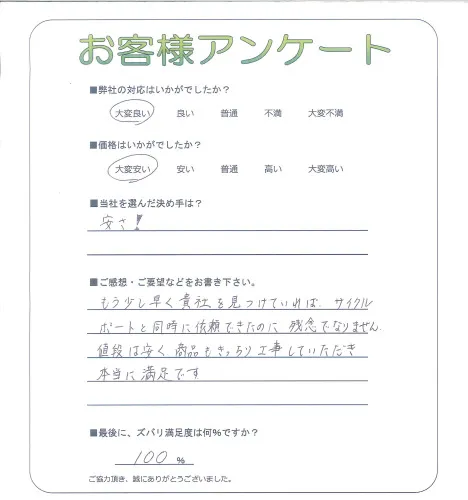 お客様アンケート
■弊社の対応はいかがでしたか？
大変良い 良い 普通 不満 大変不満
■価格はいかがでしたか？
大変安い 安い 普通 高い 大変高い
■当社を選んだ決め手は？
安さ！
■ご感想・ご要望などをお書き下さい。
もう少し早く貴社を見つけていれば、サイクル
ポートと同時に依頼できたのに 残念でなりません
値段は安く、商品もきっちり工事していただき
本当に満足です
■最後に、ズバリ満足度は何％ですか？
100 %
ご協力頂き、誠にありがとうございました。